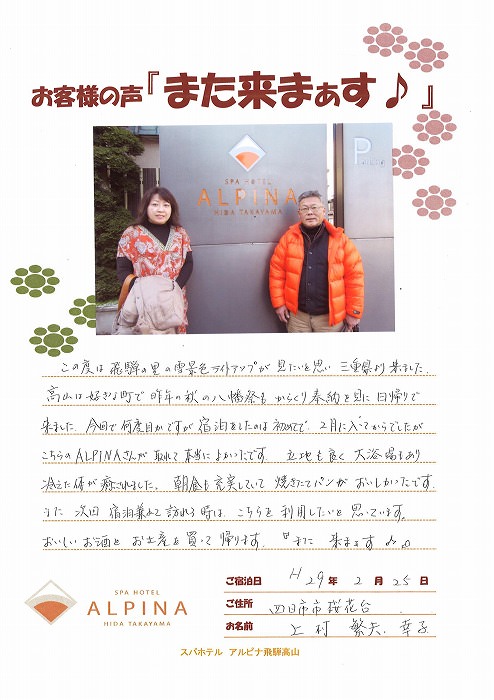 お客様の声『また来まぁす♪』
P
SPA HOTEL
ALPINA
HIDA TAKAYAMA
この度は飛騨の里の雪景色ライトアップが見たいと思い三重県より来ました。
高山は好きな町で昨年の秋の八幡祭もからくり奉納を見に日帰りで
来ました。今回で何度目かですが宿泊をしたのは初めてで、2月に入ってからでしたが
こちらのALPINAさんが取れて本当によかったです。立地も良く大浴場もあり
冷えた体が癒されました。朝食も充実していて焼きたてパンがおいしかったです。
また次回宿泊兼ねて訪れる時は、こちらを利用したいと思っています。
おいしいお酒とお土産を買って帰ります。『また来まぁす♪』
SPA HOTEL
ALPINA
HIDA TAKAYAMA
ご宿泊日 H29年2月25日
ご住所 四日市市桜花台
お名前 上村 繁夫、幸子
スパホテル アルピナ飛騨高山